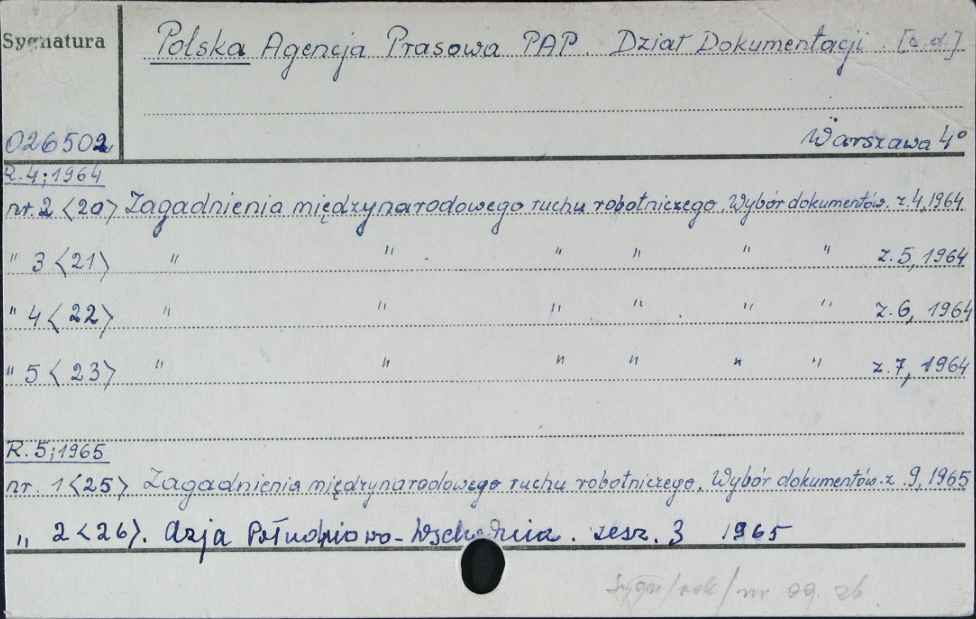 Sygnatura
Polska Agencja Prasowa PAP. Dział Dokumentacji. [c.d.]
026502
Warszawa 4°
R.4;1964
nr. 2 <20> Zagadnienia międzynarodowego ruchu robotniczego. Wybór dokumentów. z.4, 1964
" 3 <21> " " " " " " z.5, 1964
" 4 <22> " " " " " " z.6, 1964
" 5 <23> " " " " " " z.7, 1964
R.5;1965
nr. 1 <25> Zagadnienia międzynarodowego ruchu robotniczego. Wybór dokumentów. z. 9, 1965
" 2 <26>. Azja Południowo-Wschodnia. zesz. 3 1965
Sygn/rok/nr